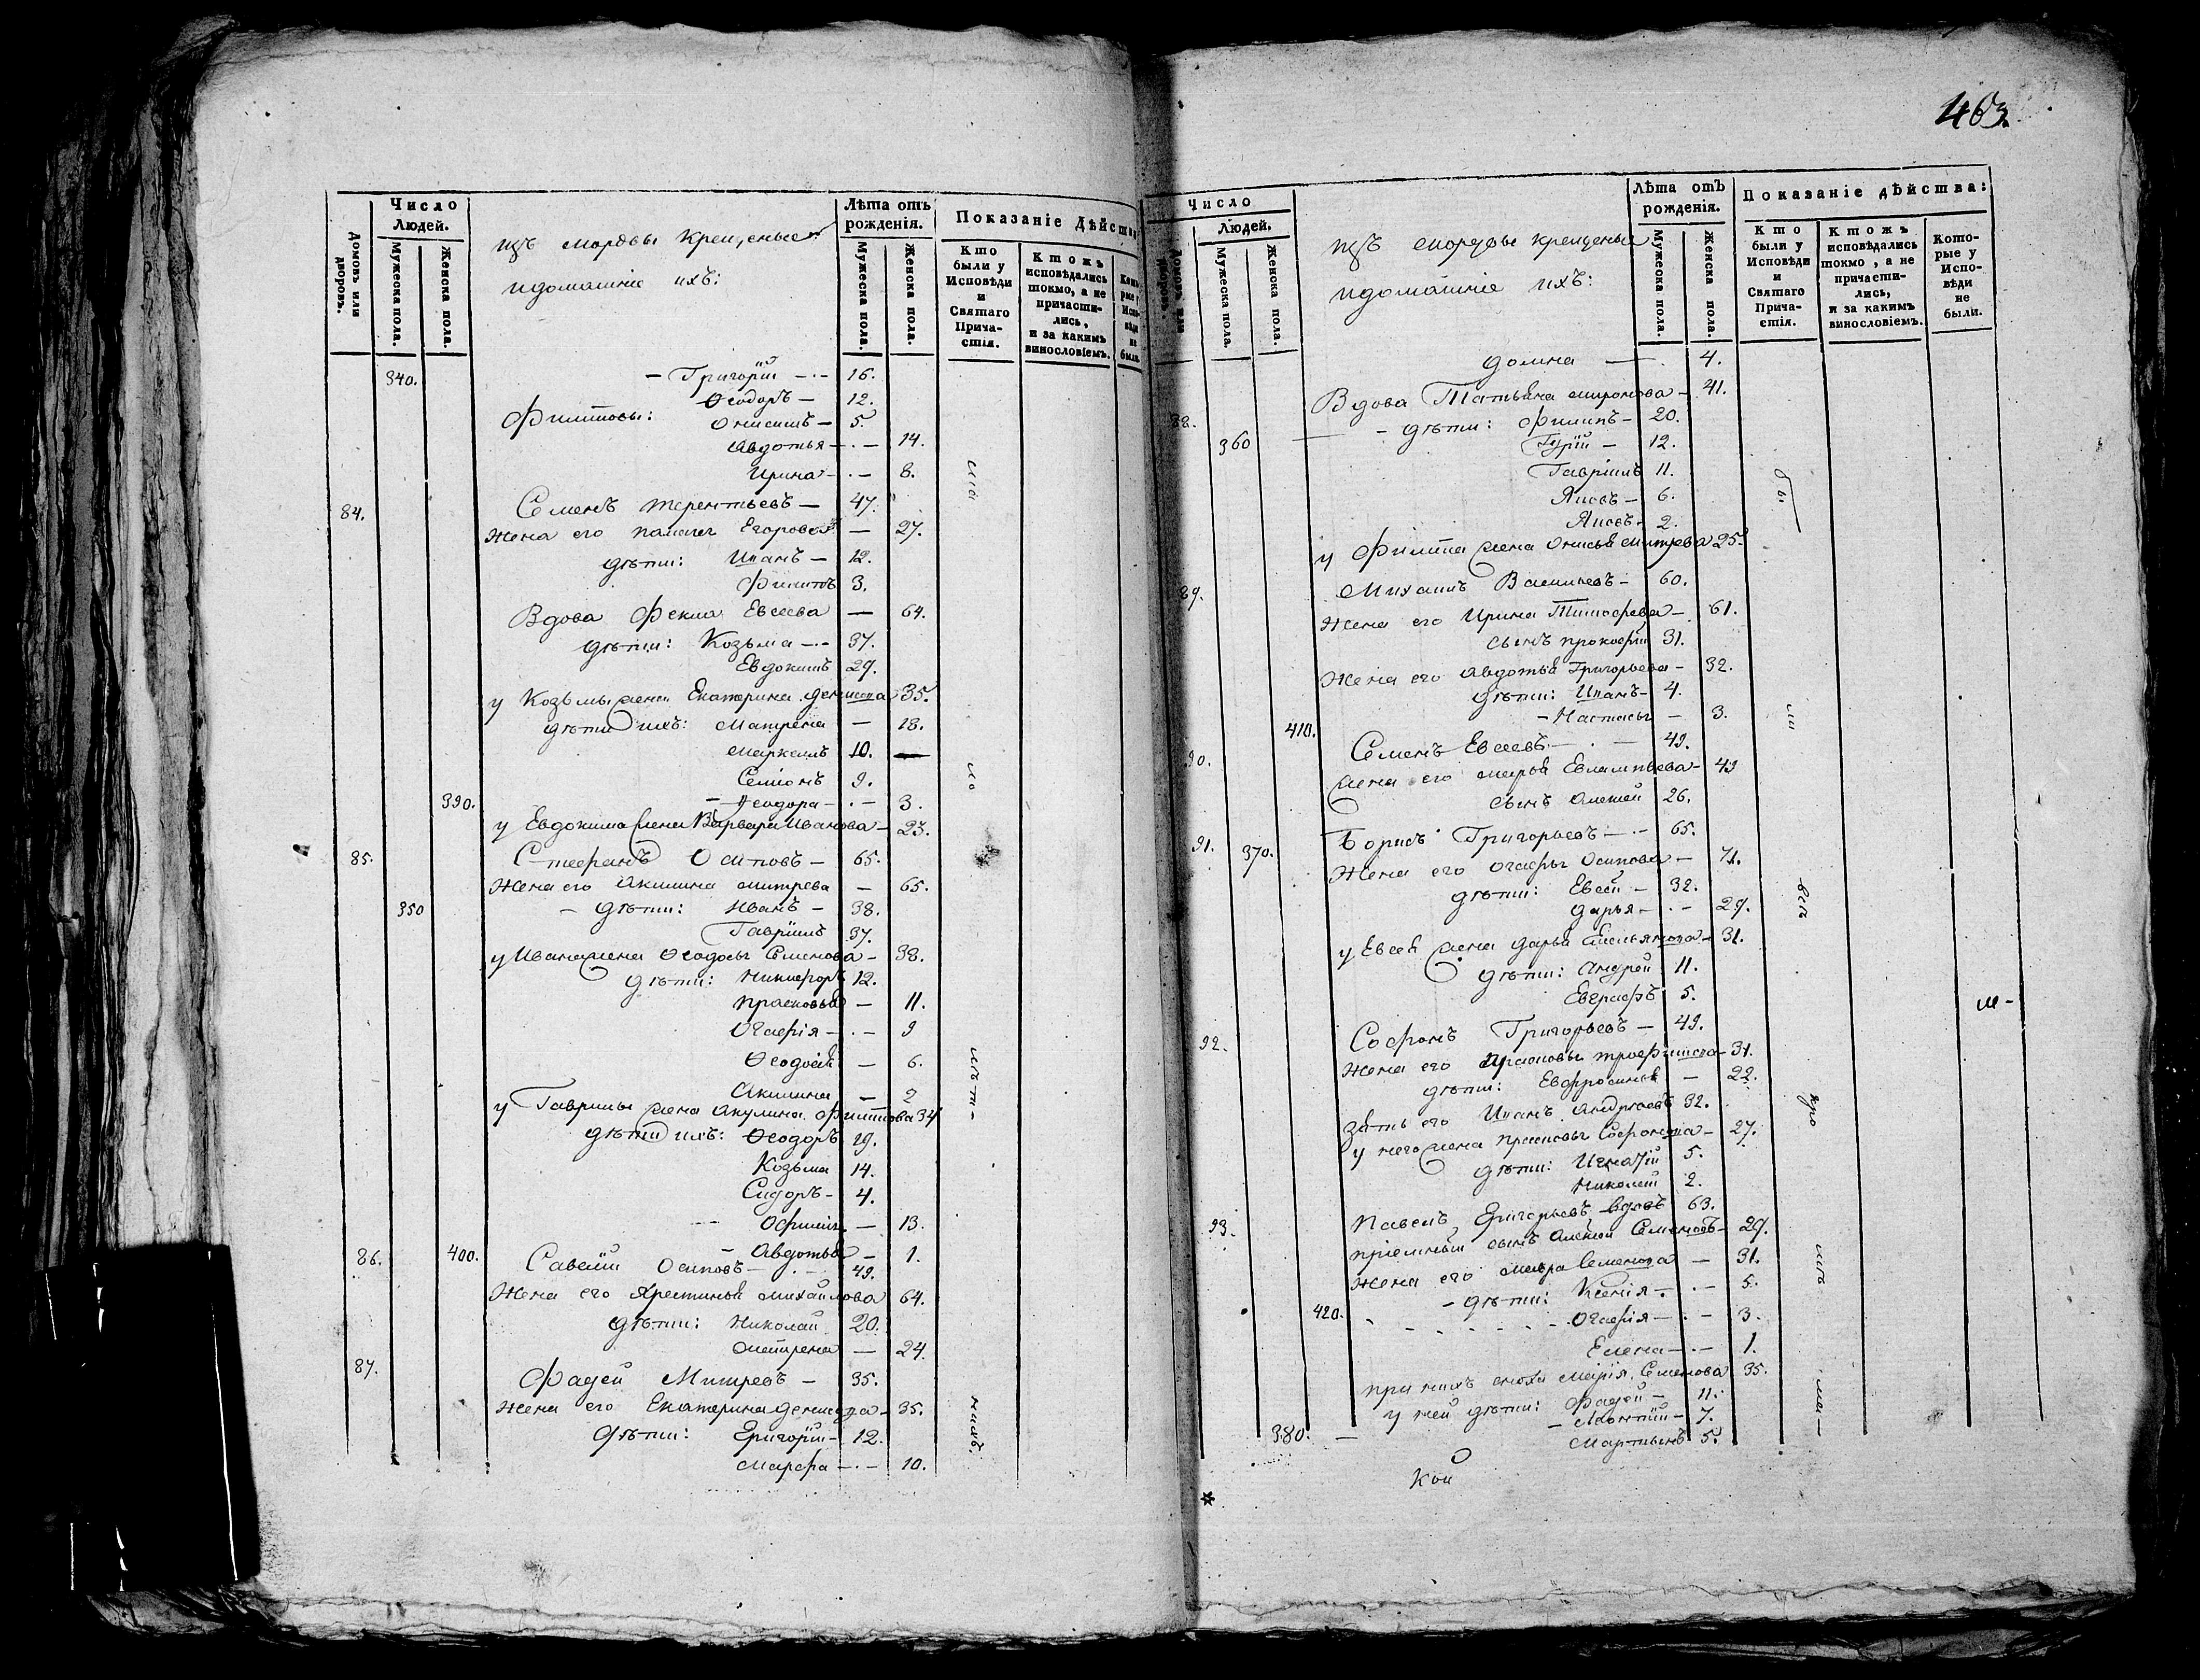 Домовъ или дворовъ.
Число Людей.
Мужеска пола.
Женска пола.
изъ мордвы крещеные
идомашнiе ихъ:
Лѣта отъ рожденiя.
Мужеска пола.
Женска пола.
Показанiе Дѣйства
Кто были у Исповѣди и Святаго Причастiя.
Ктожъ исповѣдались токмо, а не причастились, и за какимъ винословiемъ.
340. – Григорiй – 16.
Ѳеодоръ – 12.
Филиповы: Онисимъ – 5.
Авдотья – 14.
Ирина – 8.
84. Семенъ терентьевъ – 47.
Жена его Егорова – 27.
дѣти: Иванъ – 12.
Филипъ 3.
Вдова Фекла Евсеева – 64.
дѣти: Козьма – 37.
Евдокимъ 29.
у Козьмы жена Екатерина денисова 35.
дѣти ихъ: Матрена – 18.
Маркелъ 10. –
Семiонъ 9.
390. – Ѳеодора – 3.
у Евдокима жена Варвара Иванова – 23.
85. Стефанъ Осиповъ – 65.
Жена его Акилина митрева – 65.
350 – дѣти: Иванъ – 38.
Гаврiилъ 37.
у Ивана жена Ѳеодосья Семенова – 38.
дѣти: Никифоръ 12.
Прасковья – 11.
Огафiя – 9
Ѳеодосiя – 6.
Акилина – 2
у Гаврилы жена Акулина филипова 34
дѣти ихъ: Ѳеодоръ 19.
Козьма 14.
Сидоръ – 4.
– 13.
400. – Авдотья – 1.
86. Савелiй Осиповъ – 49.
Жена его Крестинья михайлова 64.
дѣти: Николай 20.
– 24.
87. Фадей Митревъ – 35.
Жена его Екатерина денисова – 35.
дѣти: Григорiй – 12.
Марфа – 10.
403.
Число Людей.
Домовъ или дворовъ.
Мужеска пола.
Женска пола.
изъ мордвы крещеные
идомашнiе ихъ:
Лѣта отъ рожденiя.
Мужеска пола.
Женска пола.
Показанiе дѣйства:
Кто были у Исповѣди и Святаго Причастiя.
Ктожъ исповѣдались токмо, а не причастились, и за какимъ винословiемъ.
Которые у Исповѣди не были.
домна – 4.
88. Вдова Татьяна миронова – 41.
– дѣти: Филипъ – 20.
360 Гурiй – 12.
Гаврiилъ 11.
Яковъ – 6.
Яковъ – 2.
у Филипа жена Онисья митрева 25.
89. Михаилъ Васильевъ – 60.
Жена его Ирина Тимофеева – 61.
сынъ прокофiй 31.
Жена его Авдотья Григорьева – 32.
дѣти: Иванъ – 4.
410. – Настасья – 3.
90. Семенъ Евсеевъ – 49.
жена его марья Евлампьева – 49
сынъ Алексей 26.
91. 370. Борисъ Григорьевъ – 65.
Жена его огафья Осипова – 71.
дѣти: Евсей – 32.
дарья – 29.
у Евсея жена дарья Емельянова – 31.
дѣти: Андрей 11.
Евграфъ 5.
92. Софронъ Григорьевъ – 49.
Жена его Прасковья трофимова – 31.
дѣти: Евфросинья – 22.
зять его Иванъ Андреевъ 32.
у него жена прасковья Софронова – 27.
дѣти: Игнатiй 5.
Николай 2.
93. Павелъ Григорьевъ вдовъ 63.
прiемный сынъ Алексей Семеновъ – 29.
Жена его Семенова – 31.
– дѣти: Ксенiя – 5.
420. Огафiя – 3.
Елена – 1.
при нихъ сноха Марiя Семенова 35.
у ней дѣти: Фадей – 11.
380. – Леонтiй – 7.
Мартынъ 5.